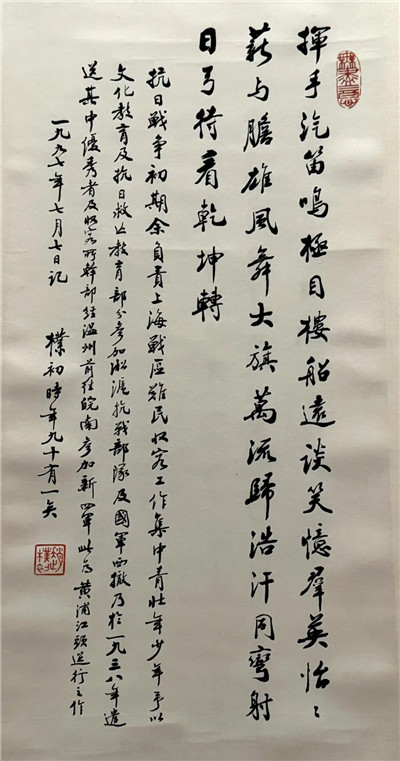 無盡意
揮手汽笛鳴極目樓船遠談笑憶羣英怡〻
薪与膽雄風舞大旗萬流歸浩汗同彎射
日弓待看乾坤轉
抗日戰爭初期余負責上海戰區難民收容工作集中青壯年少年予以
文化教育及抗日救亡教育部分參加淞滬抗戰部隊及國軍西撤乃於一九三八年遣
送其中優秀者及收容所幹部經溫州前往皖南參加新四軍此為黃浦江頭送行之作
一九九七年七月七日記
樸初時年九十有一矣
趙樸初